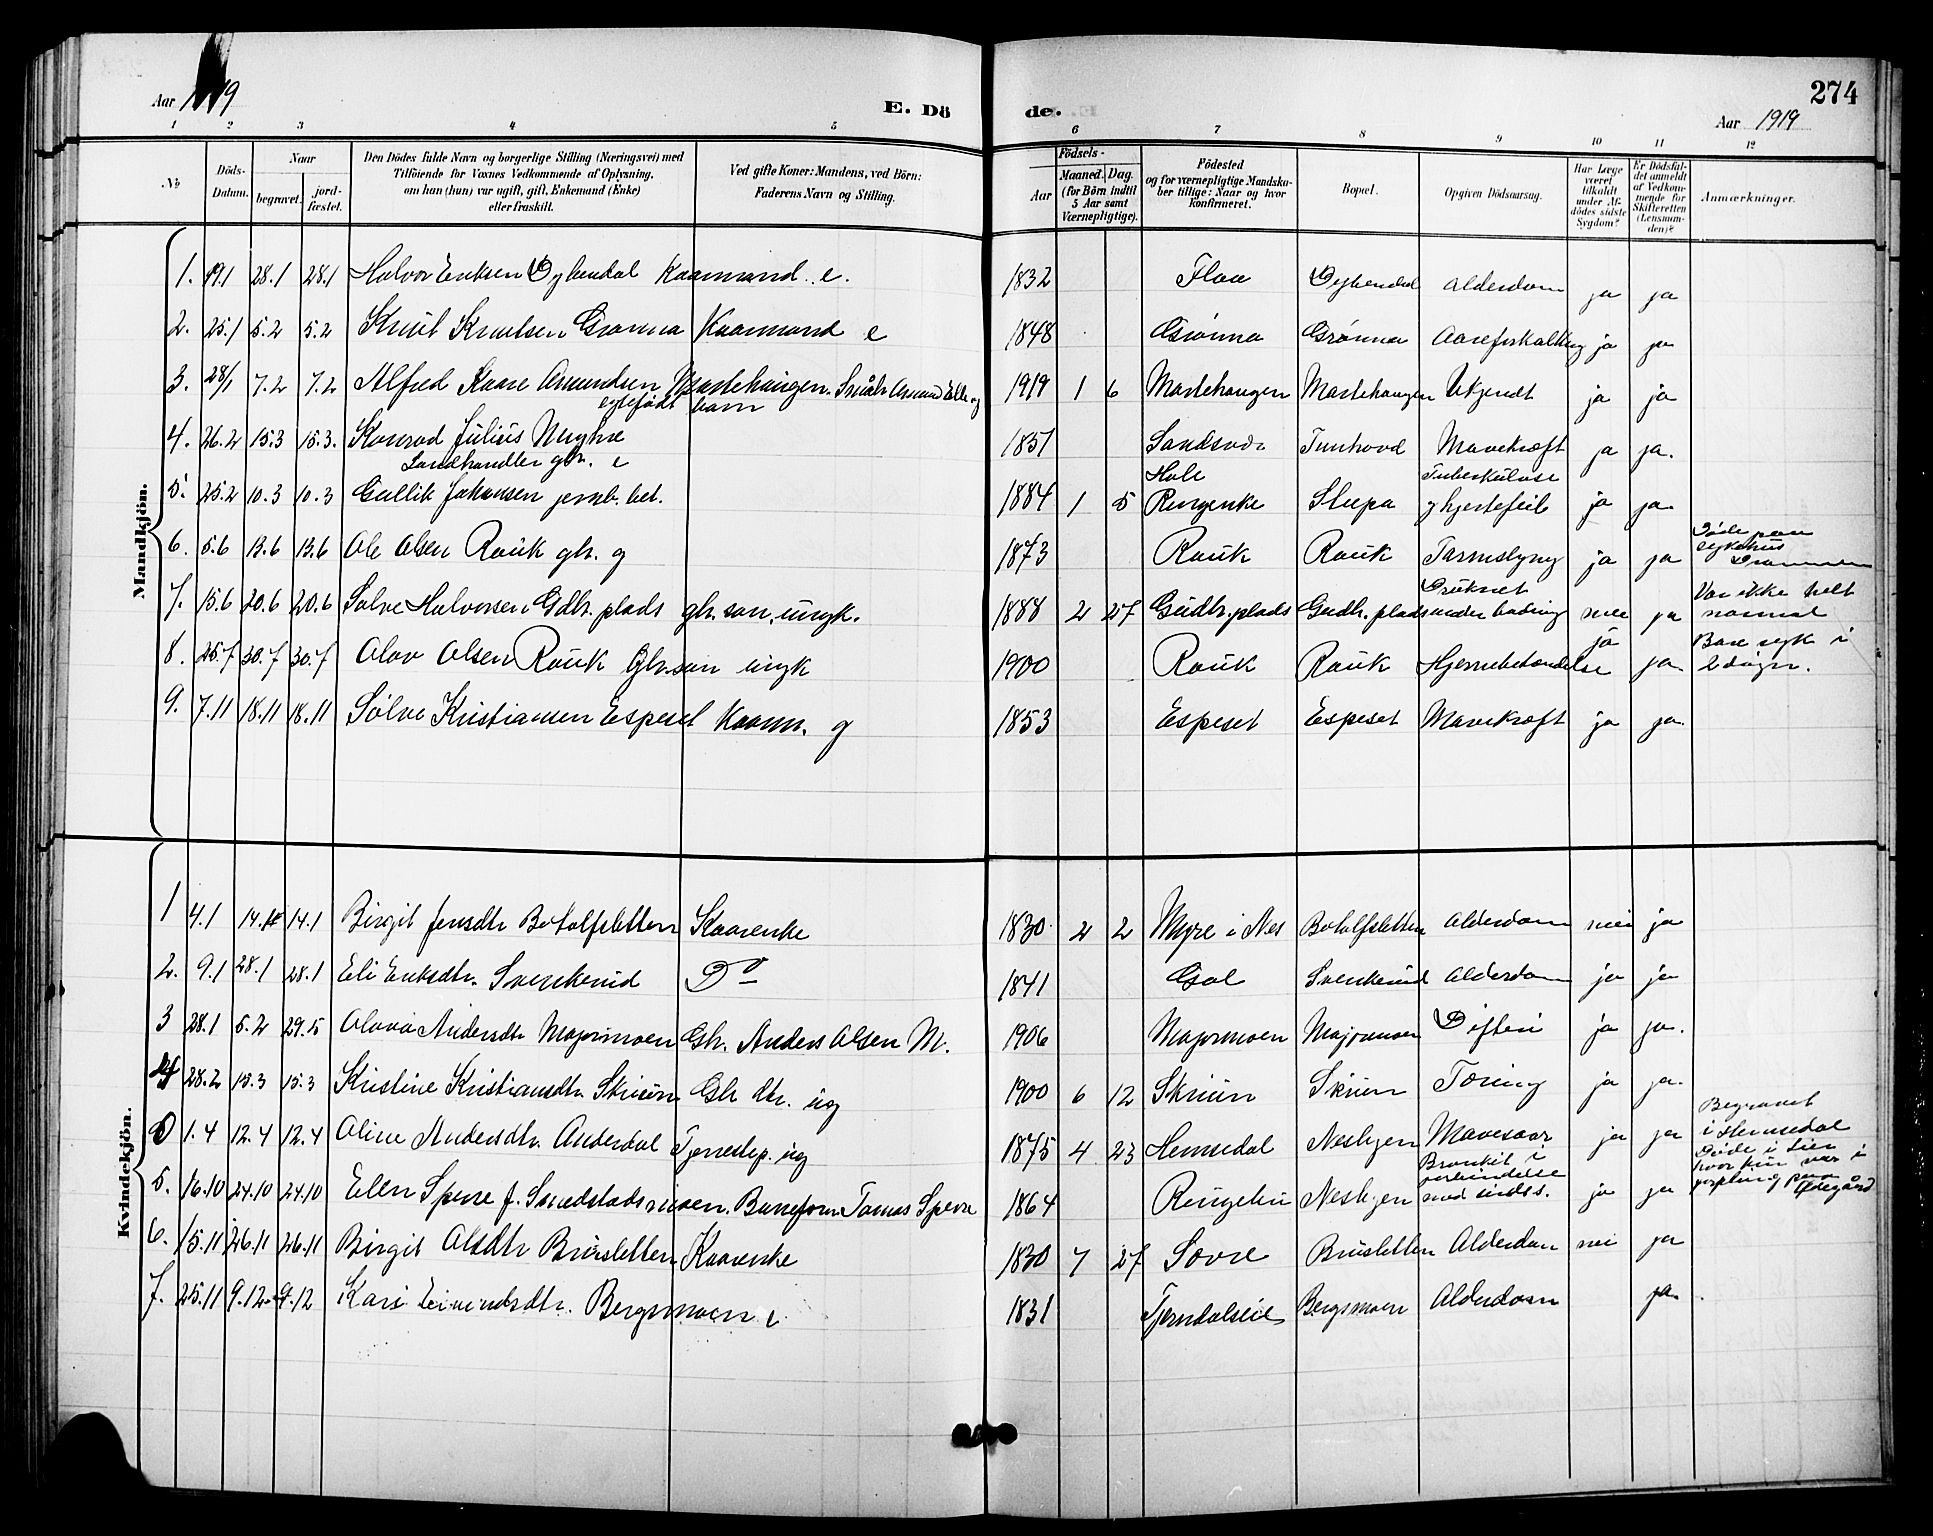 Aar 1919
E. Dö
de.
274
Aar 1919
1 2 3 4 5 6 7 8 9 10 11 12
No
Döds-Datum.
Naar
begravet.
jord-fæstet.
Den Dödes fulde Navn og borgerlige Stilling (Næringsvei) med
Tilföiende for Voxnes Vedkommende af Oplysning,
om han (hun) var ugift, gift, Enkemand (Enke)
eller fraskilt.
Ved gifte Koner: Mandens, ved Börn:
Faderens Navn og Stilling.
Födsels-
Aar
Maaned. Dag.
(for Börn indtil
5 Aar samt
Værnepligtige).
Födested
og for værnepligtige Mandska-
ber tillige: Naar og hvor
konfirmeret.
Bopæl.
Opgiven Dödsaarsag.
Har Læge
været
tilkaldt
under Af-
dödes sidste
Sygdom?
Er Dödsfal-
det anmeldt
af Vedkom-
mende for
Skifteretten
(Lensman-
den)?
Anmærkninger.
Mandkjön.
1. 19.1 28.1 28.1 Halvor Eriksen Dybendal Kaarmand. e. 1832 Flaa Dybendal Alderdom ja ja
2. 25.1 5.2 5.2 Knut Knutsen Grønna Kaarmand e 1848 Grønna Grønna Aareforkalkning ja ja
3. 28/1 7.2 7.2 Alfred Kaare Amundsen Martehaugen. 1919 1 6 Martehaugen Martehaugen Ukjendt ja ja
egtefødt barn
4. 26.2 15.3 15.3. Konrad Julius Myhre 1851 Sandsvær Tunhovd Mavekræft ja ja.
Landhandler gbr. e
5. 25.2 10.3 10.3 Gullik Johansen jernb. bet. 1884 1 5 Hole Ringerike Sleepa Tuberkulose
og hjertefeil ja ja
6. 5.6 13.6 13.6 Ole Olsen Rouk gbr. g 1873 Rouk Rouk Tarmslyng ja ja Døde paa
sykehus
Drammen
7. 15.6 20.6 20.6 Solve Halvorsen Gdbr. plads gbr. søn, ungk. 1888 2 27 Gudbr. plads Gudbr. plads Druknet
under bading nei ja Var ikke helt
normal
8. 25.7 30.7 30.7 Olav Olsen Rouk Gbr. søn ungk 1900 Rouk Rouk Hjernebetændelse ja ja Bare syk i
2 døgn.
9. 7.11 18.11 18.11 Sølve Kristiansen Espeset Kaarm. g 1853 Espeset Espeset Mavekræft ja ja
Kvindekjön.
1 4.1 14.1 14.1 Birgit Jensdtr Botolfsletten Kaarenke 1830 2 2 Myre i Nes Botolfsletten Alderdom nei ja
2. 9.1 28.1 28.1 Eli Eriksdtr. Svenkerud Do 1841 Gol Svenkerud Alderdom ja ja
3 28.1 5.2 29.5 Olava Andersdtr Majormoen Gbr. Anders Olsen M. 1906 Majormoen Majormoen Difteri ja ja.
4 28.2 15.3 15.3 Kristine Kristiansdtr. Skriun Gbr dtr. ug 1900 6 12 Skriun Skriun Tæring ja ja.
1.4 12.4 12.4 Oline Andersdtr. Anderdal Tjenestep. ug 1875 4 23 Hemsedal Nesbyen Mavesaar ja ja Begravet
i Hemsedal
5. 16.10 24.10 24.10 Ellen Spene f. Smedstadsmoen. Baneform. Tomas Spene 1864 Ringebu Nesbyen Bronkit i
forbindelse
med sinds s. ja ja Døde i Lier
hvor hun var i
forpleining paa
Ødegård
6. 15.11 26.11 26.11 Birgit Olsdtr Bruusletten Kaarenke 1830 7 27 Sovre Brusletten Alderdom nei ja
7. 25.11 9.12 9.12 Kari Eivindsdtr. Bergsmoen e. 1831 Tjerndalseie Bergsmoen Alderdom ja